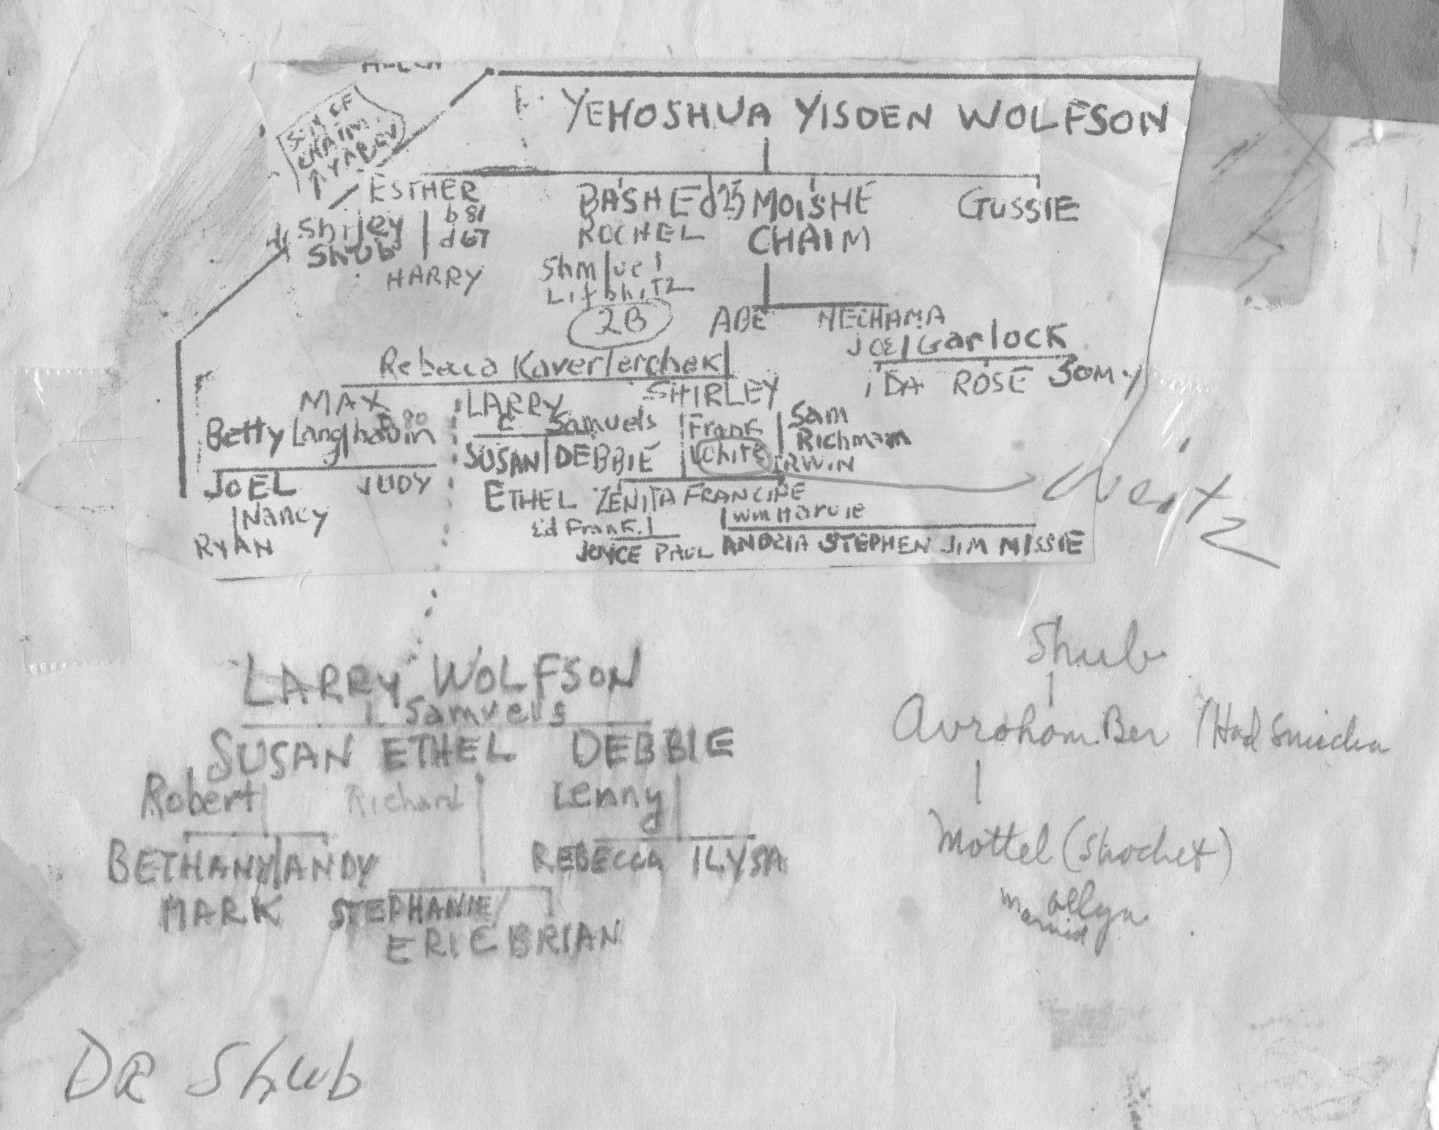 SON OF
CHAIM
YAACOV
YEHOSHUA YISDEN WOLFSON
ESTHER BASHE d 25 MOISHE GUSSIE
Shijey b 81
Shub d 67 ROCHEL CHAIM
HARRY Shmuel
Lifshitz
2B ABE NECHAMA
Joel Garlock
Rebeca
IDA ROSE
MAX LARRY SHIRLEY
Betty Samuels Frank Sam
White Richman
SUSAN DEBBIE IRWIN
JOEL JUDY ETHEL ZENITA FRANCINE
Nancy Wm Harvie
RYAN Ed Frankl
JOYCE PAUL ANDRIA STEPHEN JIM MISSIE
Weitz
LARRY WOLFSON
Samuels
SUSAN ETHEL DEBBIE
Robert Richard Lenny
BETHANY ANDY REBECCA ILYSA
MARK STEPHANIE
ERIC BRIAN
Shub
Avrohom Ber / Had Smicha
Mottel (Shochet)
married
DR Shub